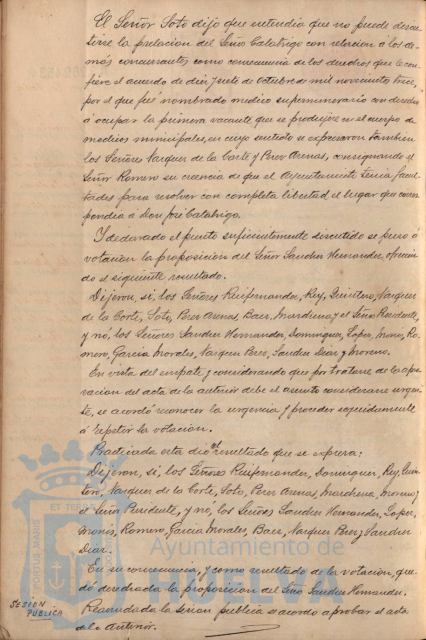 El Señor Soto dijo que entendia que no puede discu-
tirse la prelacion del Señor Calatrigo con relacion á los de-
más concursantes como consecuencia de los derechos que le con-
fiere el acuerdo de diez y siete de Octubre de mil novecientos trece,
por el que fué nombrado medico supernumerario con derecho
á ocupar la primera vacante que se produjese en el cuerpo de
medicos municipales, en cuyo sentido se expresaron tambien
los Señores Vazquez de la Corte y Perez Arenas, consignando el
Señor Romero su creencia de que el Ayuntamiento tenia facul-
tades para resolver con completa libertad el lugar que corres-
pondia á Don José Calatrigo.
Y declarado el punto suficientemente discutido se puso á
votacion la proposicion del Señor Sanchez Hernandez, ofrecien-
do el siguiente resultado.
Dijeron, si, los Señores Ruifernandez, Rey, Quintero, Vazquez
de la Corte, Soto, Perez Arenas, Baez, Marchena, y el Señor Presidente,
y nó, los Señores Sanchez Hernandez, Dominguez, Lopez, Ro-
mero, Garcia Morales, Vazquez Perez, Sanchez Diaz y Moreno.
En vista del empate y considerando que por tratarse de la apro-
bacion del acta de la anterior debe el asunto considerarse urgen-
te, se acordó reconocer la urgencia y proceder seguidamente
á repetir la votacion.
Practicada esta dió el resultado que se expresa:
Dijeron, si, los Señores Ruifernandez, Dominguez, Rey, Quin-
tero, Vazquez de la Corte, Soto, Perez Arenas, Marchena, Moreno y
el Señor Presidente, y no, los Señores Sanchez Hernandez, Lopez,
Romero, Garcia Morales, Baez, Vazquez Perez y Sanchez
Diaz.
En su consecuencia, y como resultado de la votacion, que-
dó desechada la proposicion del Señor Sanchez Hernandez.
SESION PUBLICA
Reanudada la Sesion publica se acordo aprobar el acta
de la anterior.
PORTUS MARIS ET TERRAE
Ayuntamiento de
HUELVA